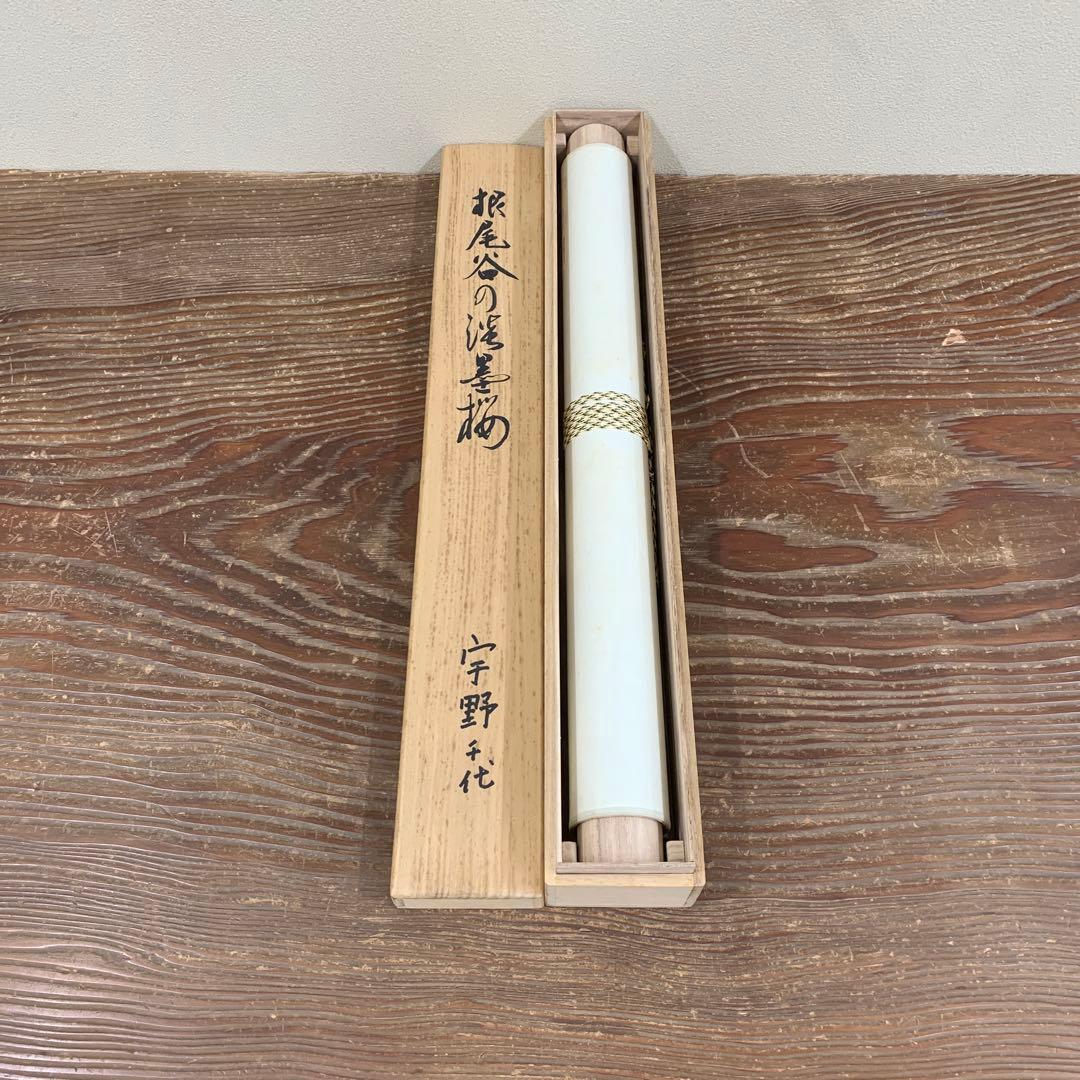 根尾谷の淡墨桜
宇野千代